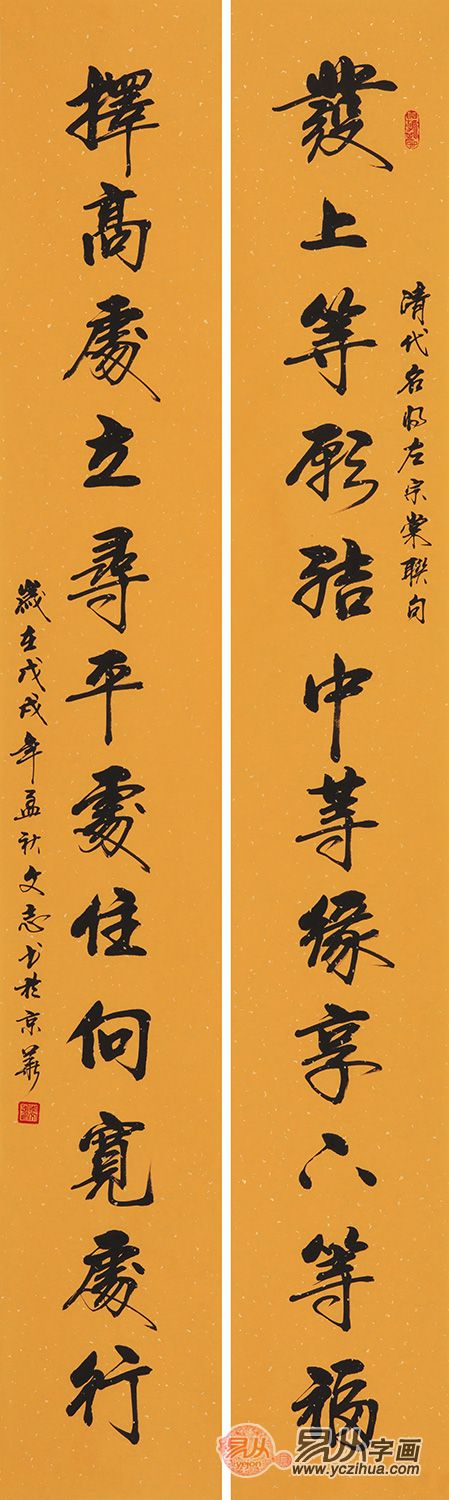 發上等願結中等緣享下等福
清代名將左宗棠聯句
擇高處立尋平處住向寬處行
歲在戊戌年孟秋文志書於京華
易从
易从字画
www.yczihua.com